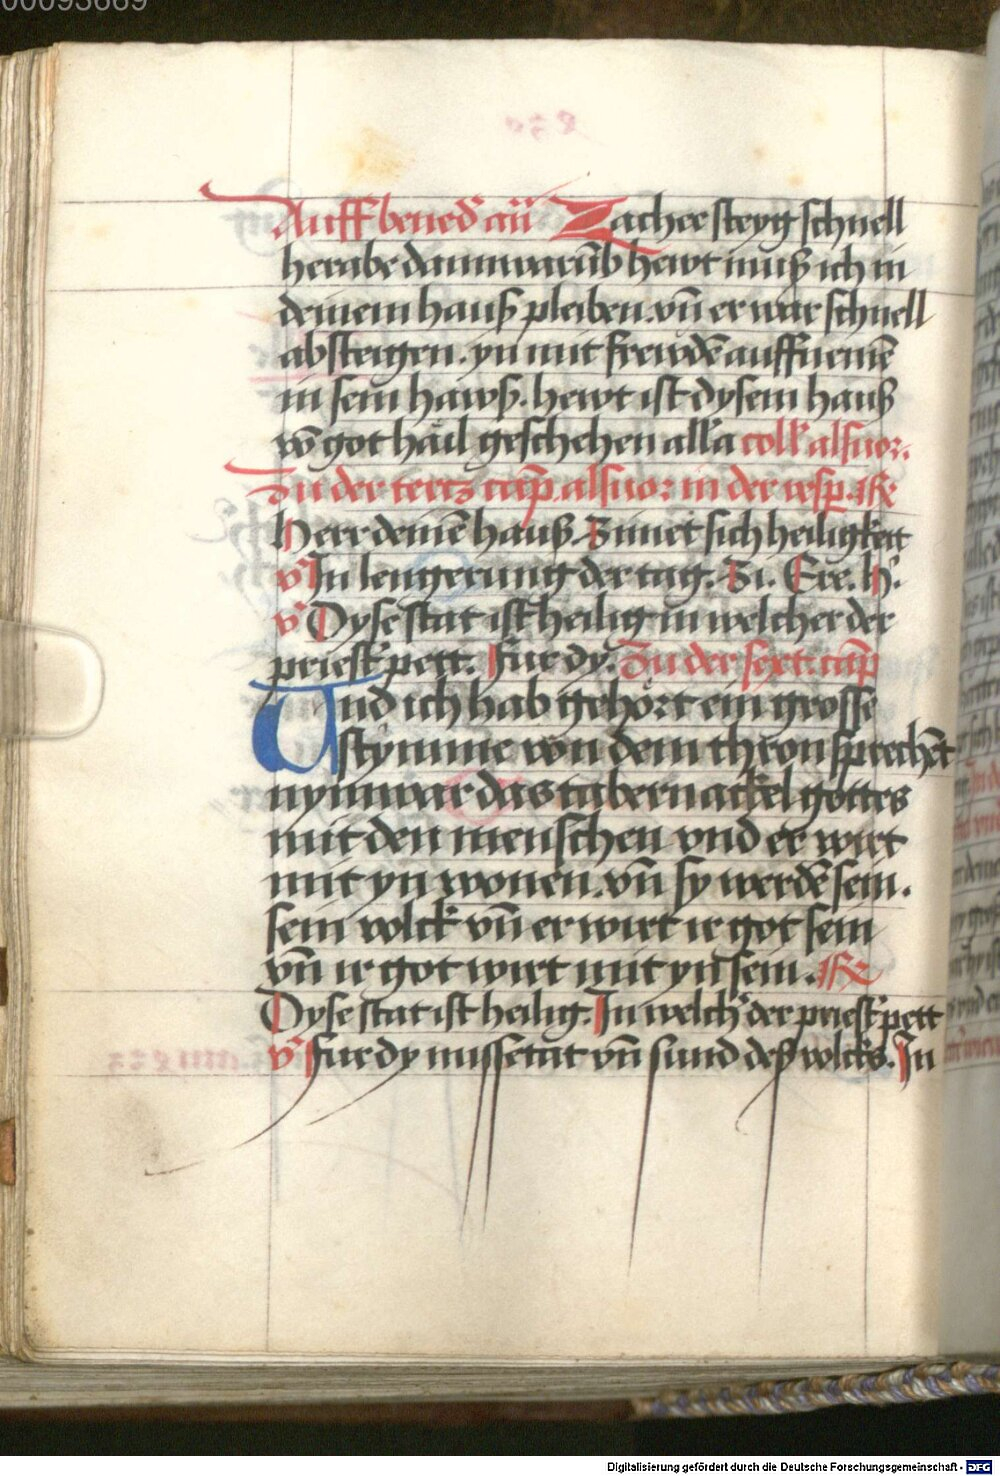 00093669
Auff bened' añ Zachee steyg schnell
herabe dann warūb hewt muß ich in
deinem hauß pleiben. vn̄ er war schnell
absteigen. yn mit frewdē auffnemē
in sein hawß. hewt ist dysem hauß
vō got hail geschehen alla coll' als vor.
Zu der tertz cap. als vor in der vesp. Re
Herr deinē hauß. Zimet sich heiligkeit
v' In lengerung der tag. Zi. Ere. H'.
v' Dyse stat ist heilig in welcher der
priest' pett. Fur dy. Zu der sext. cap
Und ich hab gehört ein grosse
stymme von dem thron sprechēt
nymwar das tabernackel gottes
mit den menschen vnd er wirt
mit yn wonen. vn̄ sy werdē sein.
sein volck vn̄ er wirt ir got sein
vn̄ ir got wirt mit yn sein. Re
Dyse stat ist heilig. In welch' der priest' pett
v' Fur dy missetat vn̄ sund deß volcks. In
Digitalisierung gefördert durch die Deutsche Forschungsgemeinschaft - DFG